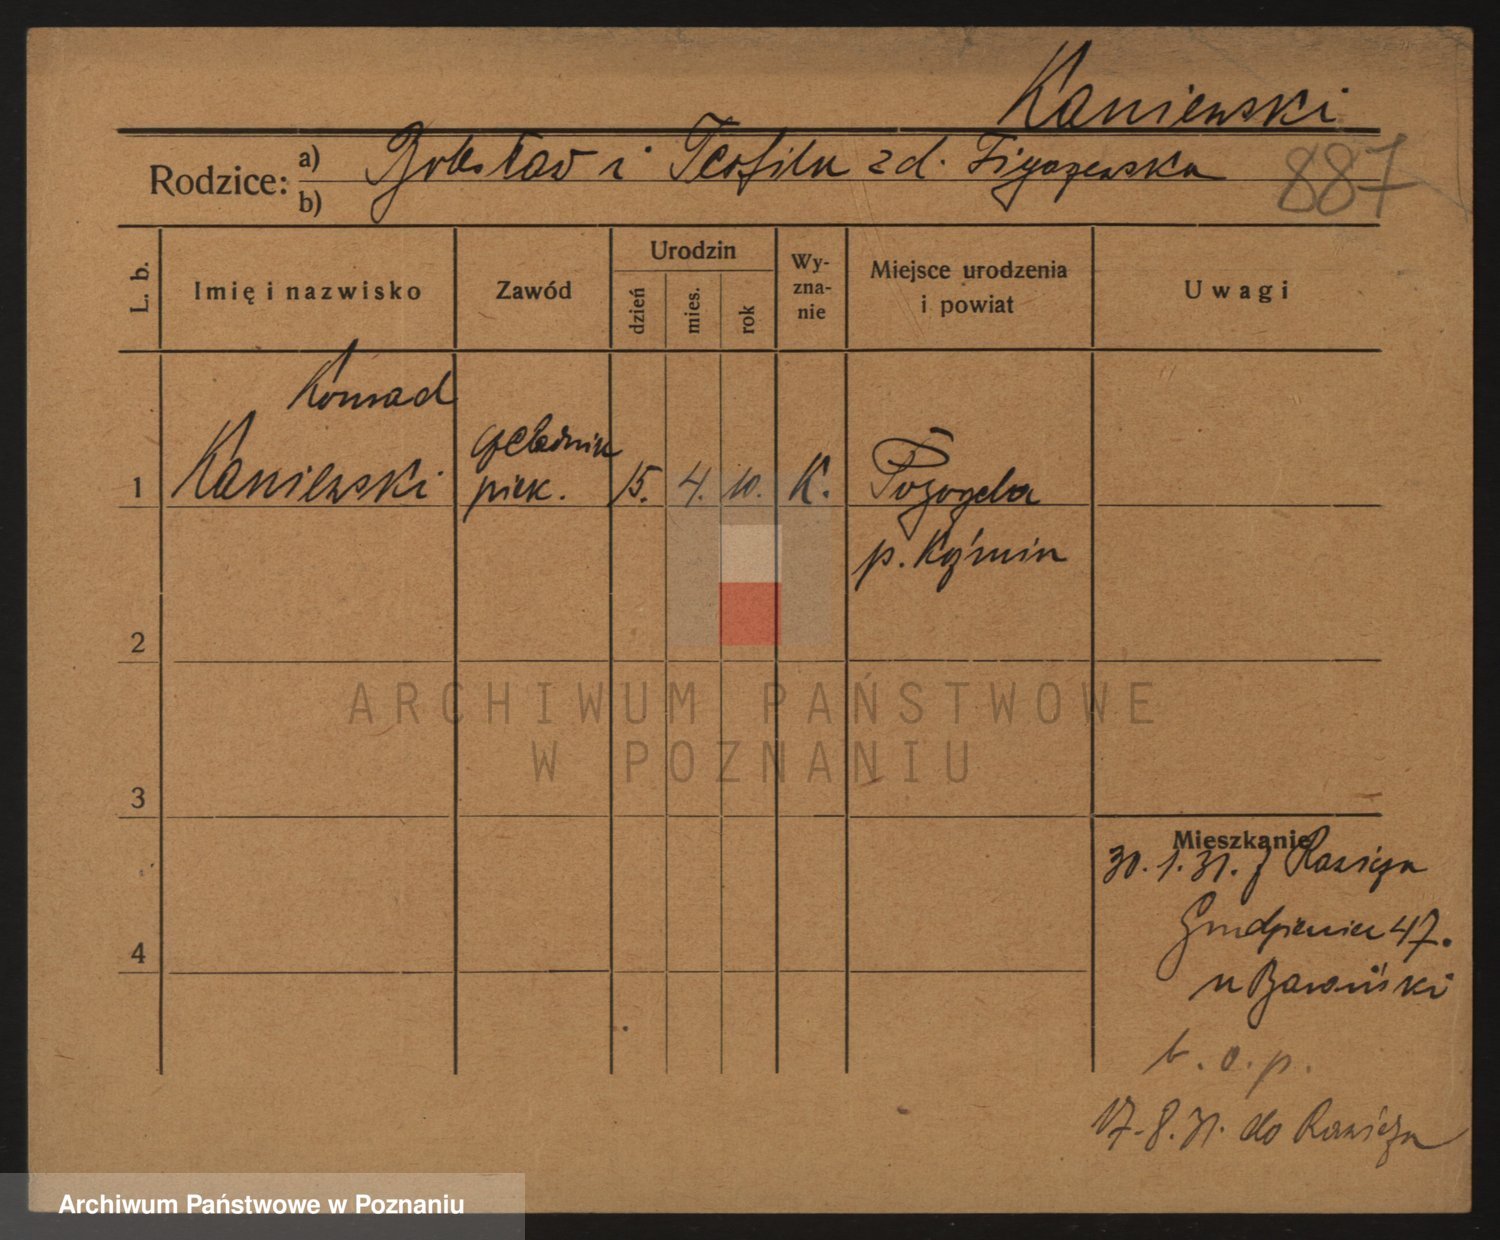 Kaniewski
Rodzice: a) Bolesław i Teofila zd.
b)
887
L. b.
Imię i nazwisko
Zawód
Urodzin
dzień
mies.
rok
Wy-
zna-
nie
Miejsce urodzenia
i powiat
Uwagi
Konrad
czeladnik
1 Kaniewski piek. 15. 4. 10. K. Pogorzela
p. Koźmin
2
ARCHIWUM PAŃSTWOWE
W POZNANIU
3
Mieszkanie
30.1.31. z Rawicza
47.
u Barański
b. o. p.
17.8.31. do Rawicza
4
Archiwum Państwowe w Poznaniu